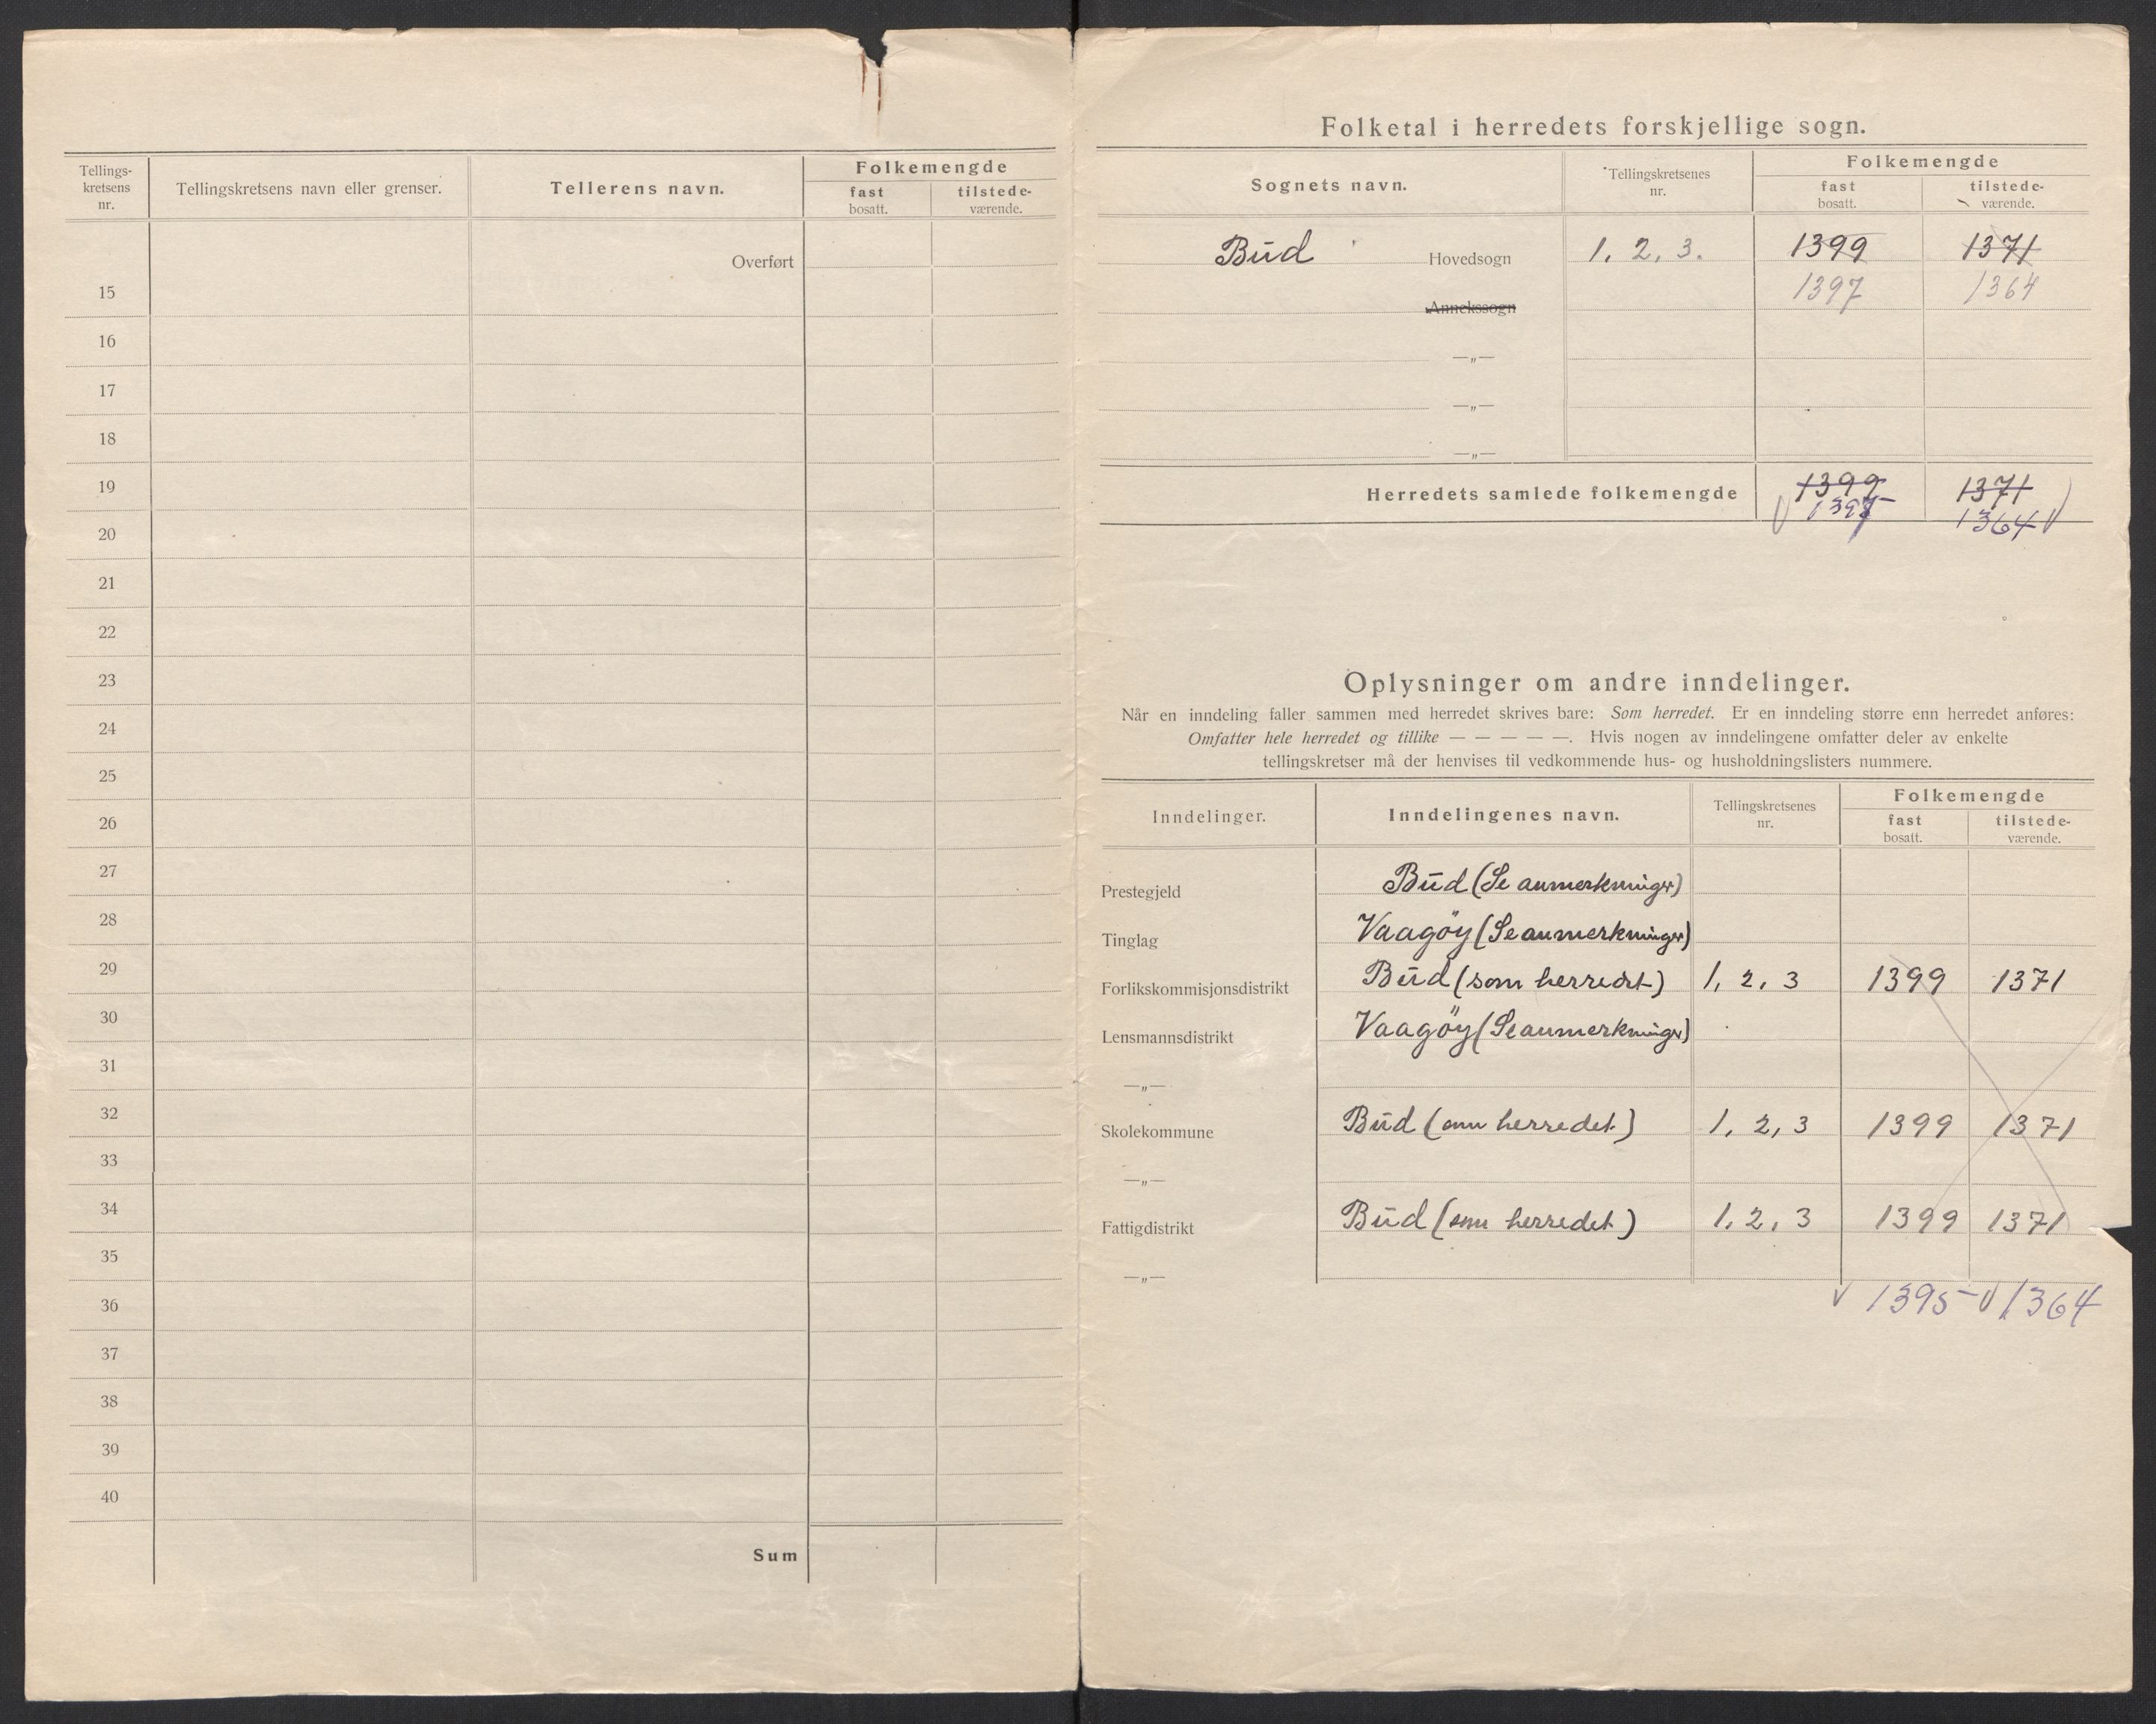 Tellings-
kretsens
nr.
Tellingskretsens navn eller grenser.
Tellerens navn.
Folkemengde
fast
bosatt.
tilstede-
værende.
Overført
15
16
17
18
19
20
21
22
23
24
25
26
27
28
29
30
31
32
33
34
35
36
37
38
39
40
Sum
Folketal i herredets forskjellige sogn.
Sognets navn.
Tellingskretsenes
nr.
Folkemengde
fast
bosatt.
tilstede-
værende.
Bud Hovedsogn 1, 2, 3. 1399 1371
1397 1364
Annekssogn
—„—
—„—
—„—
Herredets samlede folkemengde 1399 1371
1364
Oplysninger om andre inndelinger.
Når en inndeling faller sammen med herredet skrives bare: Som herredet. Er en inndeling større enn herredet anføres:
Omfatter hele herredet og tillike — — — — —. Hvis nogen av inndelingene omfatter deler av enkelte
tellingskretser må der henvises til vedkommende hus- og husholdningslisters nummere.
Inndelinger.
Inndelingenes navn.
Tellingskretsenes
nr.
Folkemengde
fast
bosatt.
tilstede-
værende.
Prestegjeld Bud (Se anmerkninger)
Tinglag Vaagöy (Se anmerkninger)
Forlikskommisjonsdistrikt Bud (som herredet) 1, 2, 3 1399 1371
Lensmannsdistrikt Vaagöy (Se anmerkninger)
—„—
Skolekommune Bud (som herredet) 1, 2, 3 1399 1371
—„—
Fattigdistrikt Bud (som herredet) 1, 2, 3 1399 1371
—„—
1395 1364